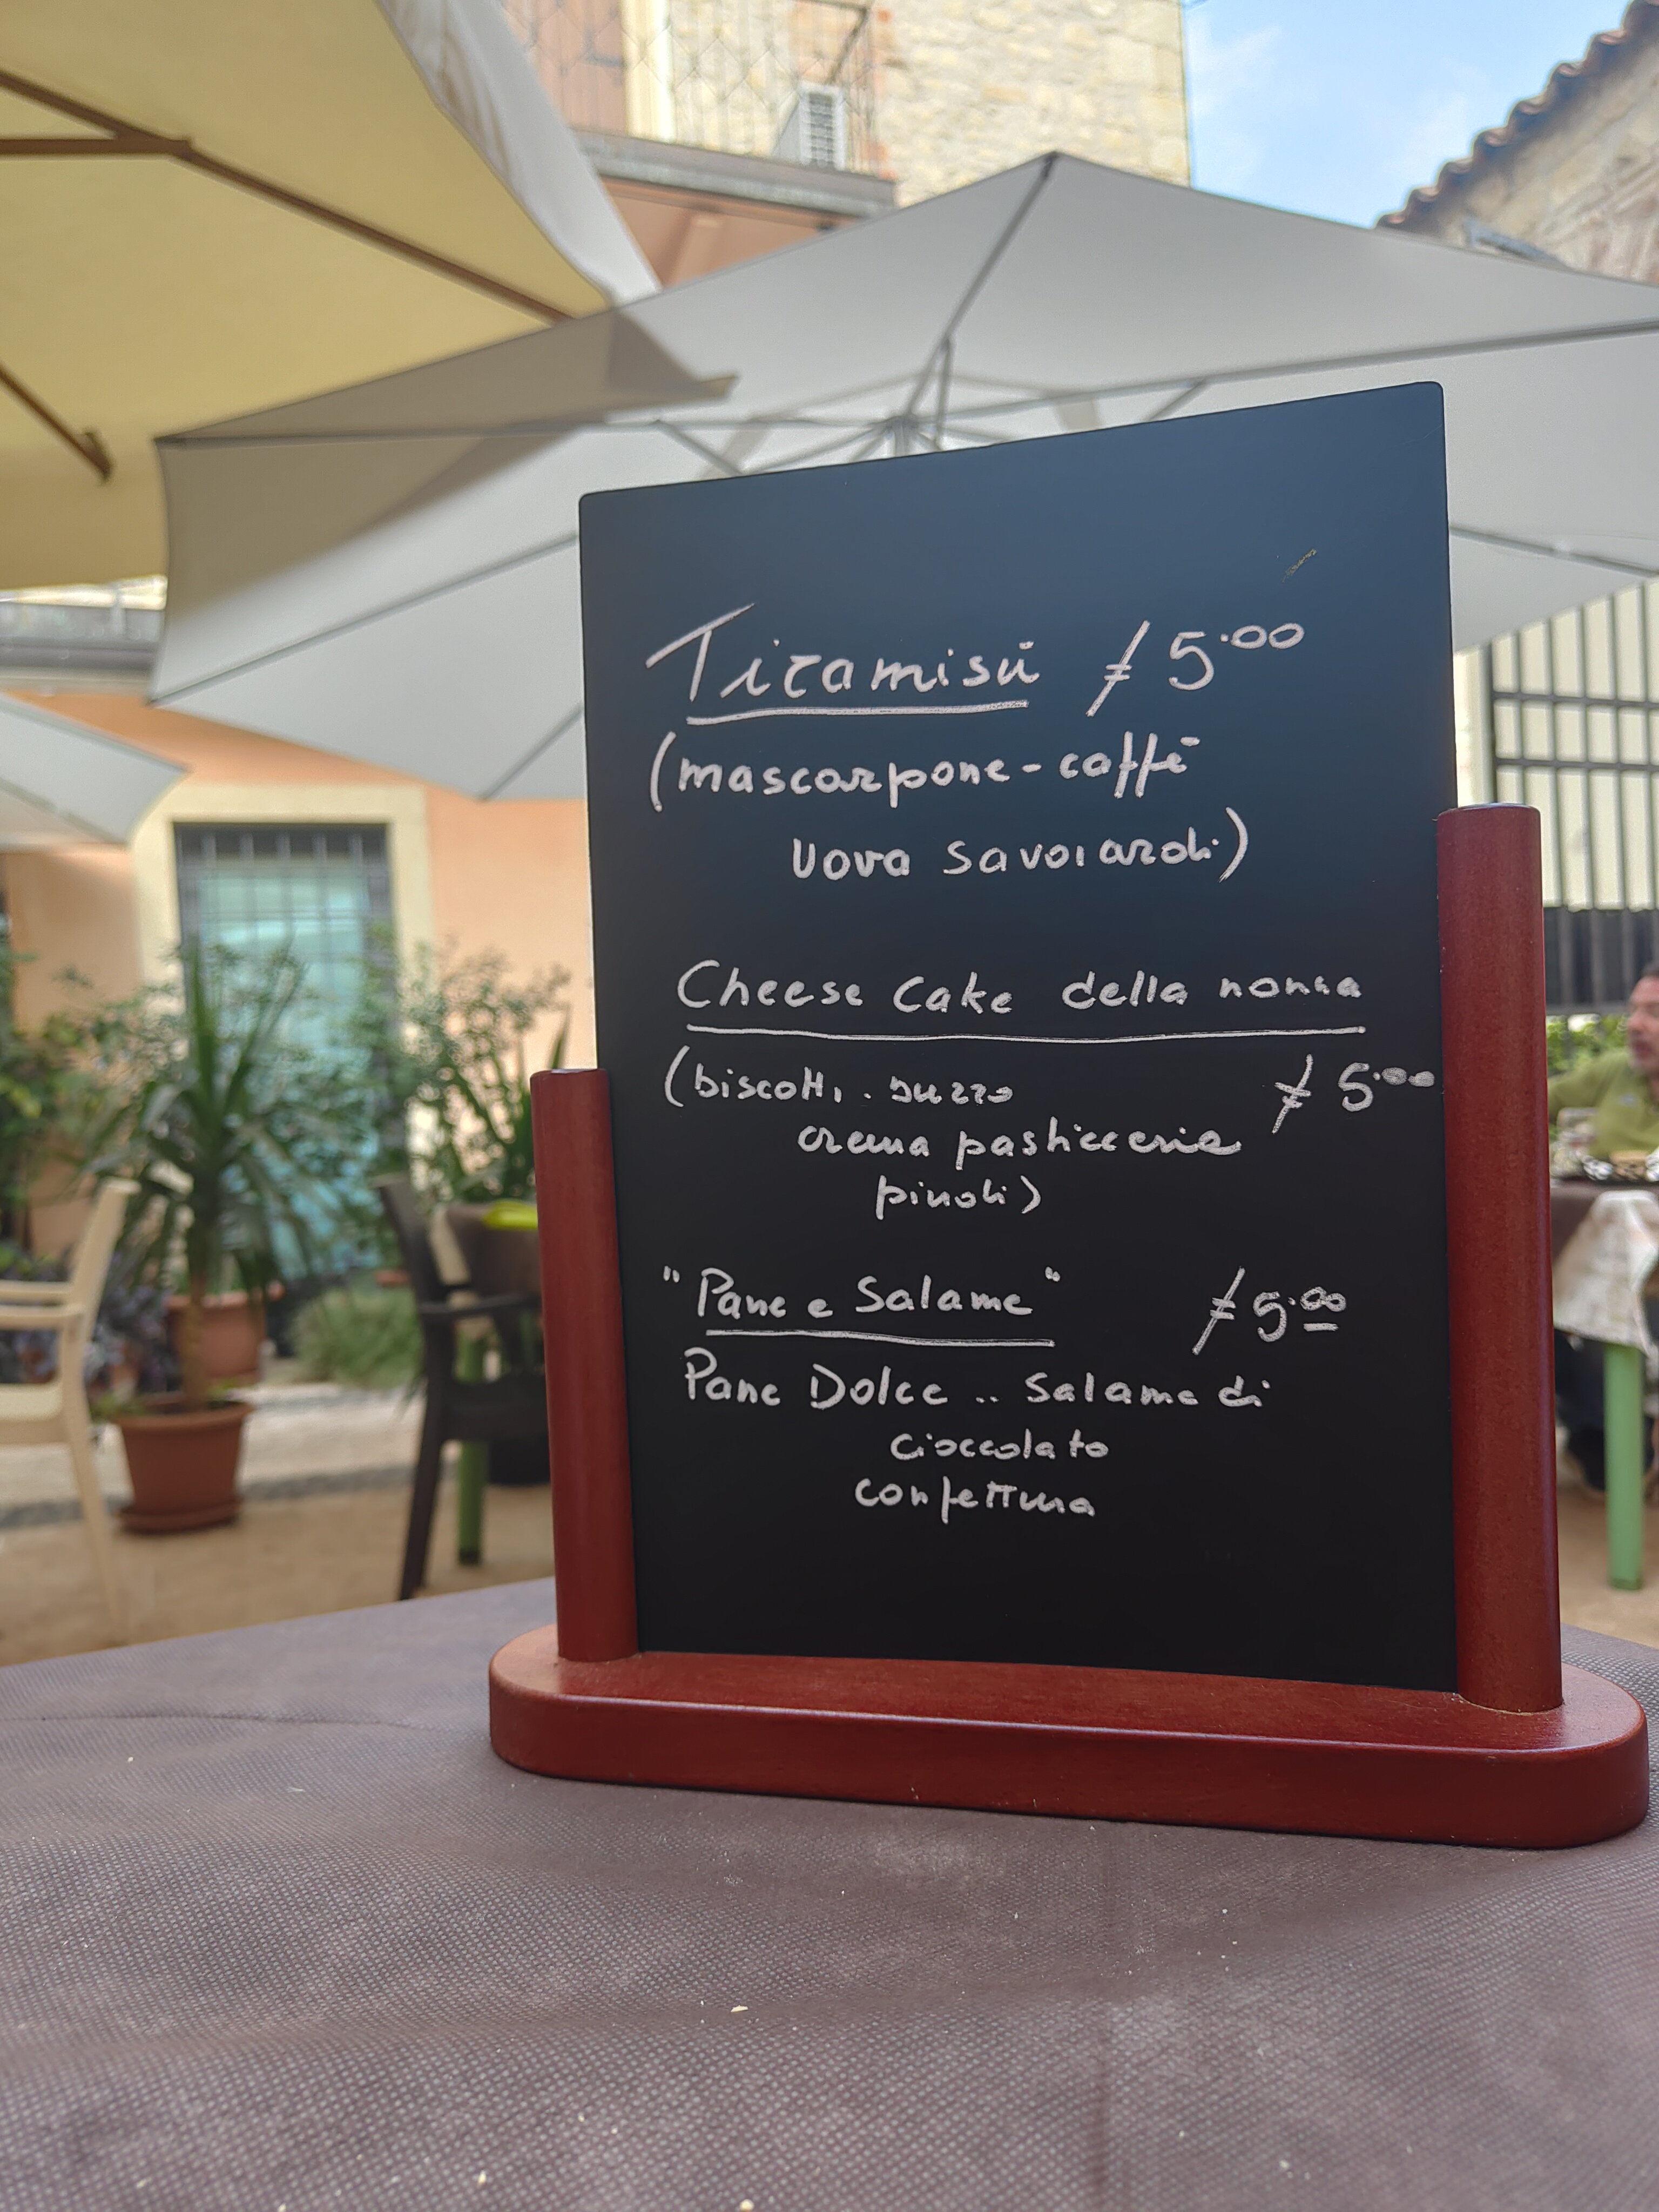 Tiramisú € 5.00
(mascarpone - caffè
uova savoiardi)
Cheese Cake della nonna
(biscotti . burro € 5.00
crema pasticceria
pinoli)
"Pane e Salame" € 5.00
Pane Dolce .. Salame di
cioccolato
confettura